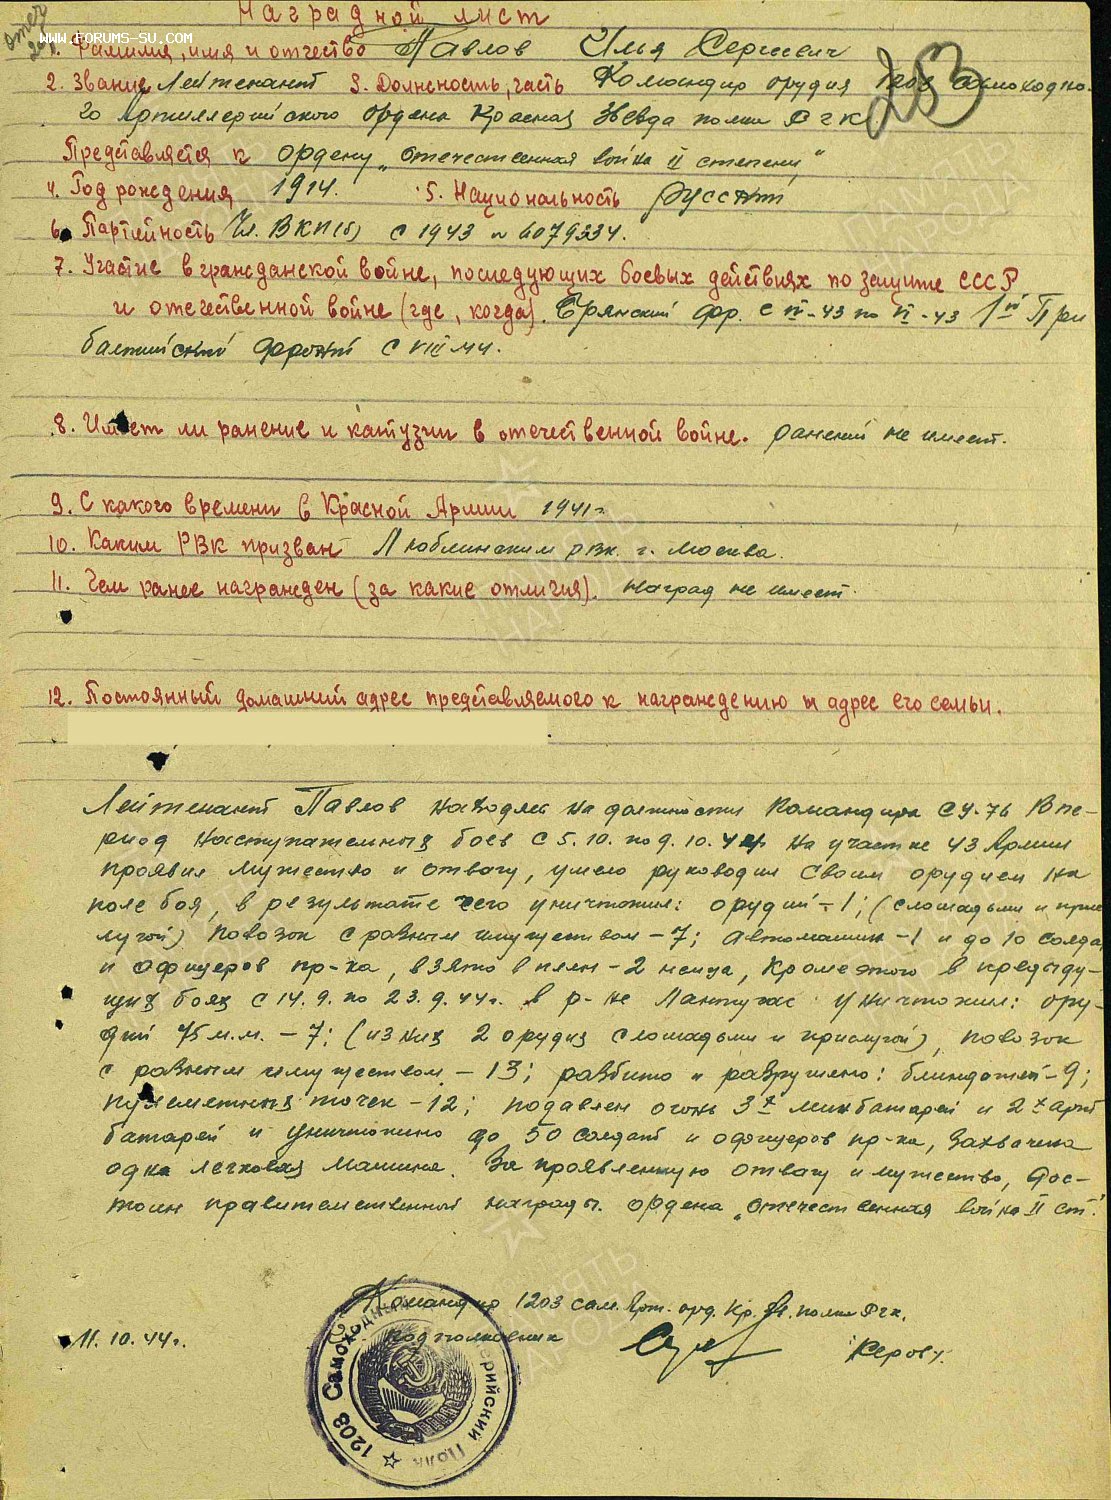 Наградной лист
www.forums-su.com
1. Фамилия, имя и отчество Павлов Илья Сергеевич
2. Звание Лейтенант 3. Должность, часть Командир орудия 1203 самоходно-
го Артиллерийского ордена Красная Звезда полка РГК
253
Представляется к ордену „отечественная война II степени"
4. Год рождения 1914. 5. Национальность русский
6. Партийность Чл. ВКП(б) с 1943 № 6079334.
7. Участие в гражданской войне, последующих боевых действиях по защите СССР
и отечественной войне (где, когда). Брянский фр. с -43 по VI-43 1й При
балтийский фронт с VIII 44.
8. Имеет ли ранение и контузии в отечественной войне. ранений не имеет.
9. С какого времени в Красной Армии 1941г.
10. Каким РВК призван Люблинским рвк. г. Москва.
11. Чем ранее награжден (за какие отличия). наград не имеет.
12. Постоянный домашний адрес представляемого к награждению и адрес его семьи.
Лейтенант Павлов находясь на должности Командира СУ-76 в пе-
риод наступательных боев с 5.10. по 9.10.44г. на участке 43 Армии
проявил мужество и отвагу, умело руководил своим орудием на
поле боя, в результате чего уничтожил: орудий-1; (с лошадьми и прис
лугой) повозок с разным имуществом-7; автомашин-1 и до 10 солдат
и офицеров пр-ка, взято в плен-2 немца, кроме этого в предыду-
щих боях с 14.9. по 23.9.44г. в р-не уничтожил: ору-
дий 75 м.м. -7; (из них 2 орудия с лошадьми и прислугой), повозок
с разным имуществом -13; разбито и разрушено: блиндажей-9;
пулеметных точек-12; подавлен огонь 3х минбатарей и 2х арт
батарей и уничтожено до 50 солдат и офицеров пр-ка, захвачена
одна легковая машина. За проявленную отвагу и мужество, дос-
тоин правительственной награды. ордена „отечественная война II ст."
Командир 1203 сам. Арт. орд. Кр. Зв. полка Ргк.
11.10.44г. подполковник
1203 Самоходный Артиллерийский Полк